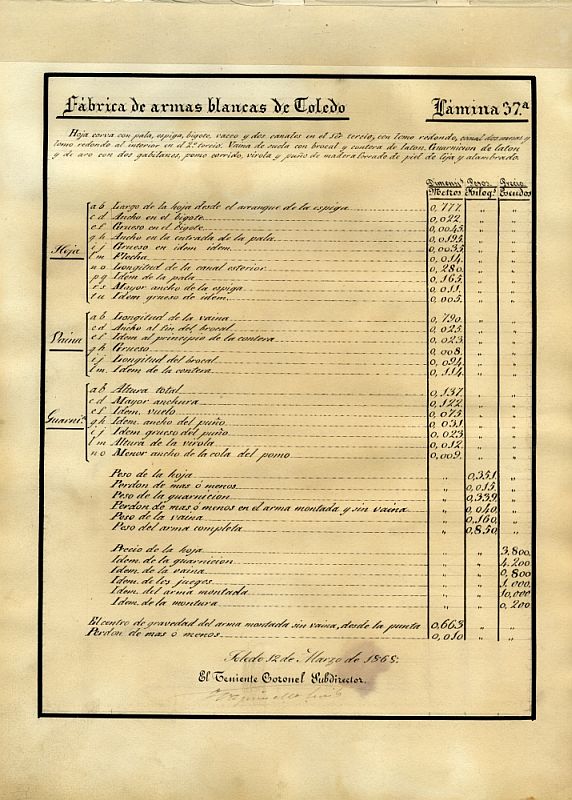 Fábrica de armas blancas de Toledo
Lámina 37.ª
Hoja corva con pala, espiga, bigote, vaceo y dos canales en el 1.er tercio, con lomo redondo, canal dos mesas y
lomo redondo al interior en el 2.º tercio. Vaina de suela con brocal y contera de laton. Guarnicion de laton
y de aro con dos gabilanes, pomo corrido, virola y puño de madera forrado de piel de lija y alambrado.
Dimens.s Pesos Precio
Metros Kilog.s Escudos
Hoja
a b Largo de la hoja desde el arranque de la espiga 0,777. " "
c d Ancho en el bigote 0,022. " "
e f Grueso en el bigote 0,0045. " "
g h Ancho en la entrada de la pala 0,0195. " "
i j Grueso en idem idem 0,0035. " "
l m Flecha 0,014. " "
n o Longitud de la canal esterior 0,280. " "
p q Idem de la pala 0,165. " "
r s Mayor ancho de la espiga 0,011. " "
t u Idem grueso de idem 0,005. " "
Vaina
a b Longitud de la vaina 0,790. " "
c d Ancho al fin del brocal 0,025. " "
e f Idem al principio de la contera 0,023. " "
g h Grueso 0,008. " "
i j Longitud del brocal 0,094. " "
l m Idem de la contera 0,114. " "
Guarn.n
a b Altura total 0,137. " "
c d Mayor anchura 0,122. " "
e f Idem vuelo 0,075. " "
g h Idem ancho del puño 0,031. " "
i j Idem grueso del puño 0,023. " "
l m Altura de la virola 0,012. " "
n o Menor ancho de la cola del pomo 0,009. " "
Peso de la hoja " 0,351. "
Perdon de mas ó menos " 0,015. "
Peso de la guarnicion " 0,339. "
Perdon de mas ó menos en el arma montada y sin vaina " 0,040. "
Peso de la vaina " 0,160. "
Peso del arma completa " 0,850. "
Precio de la hoja " " 3,800.
Idem de la guarnicion " " 4,200
Idem de la vaina " " 0,800
Idem de los juegos " " 1,000.
Idem del arma montada " " 10,000
Idem de la montura " " 0,200
El centro de gravedad del arma montada sin vaina, desde la punta 0,663 " "
Perdon de mas ó menos 0,010 " "
Toledo 12 de Marzo de 1868.
El Teniente Coronel Subdirector.